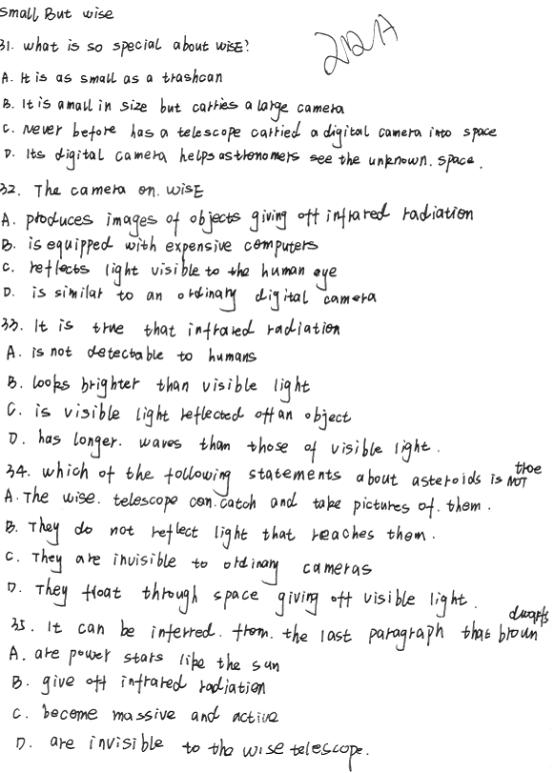 small But wise
212A
31. what is so special about wisE?
A. It is as small as a trashcan
B. It is amall in size but carries a large camera
C. Never before has a telescope carried a digital camera into space
D. Its digital camera helps astronomers see the unknown. space.
32. The camera on. wisE
A. produces images of objects giving off infrared radiation
B. is equipped with expensive computers
C. reflects light visible to the human eye
D. is similar to an ordinary digital camera
33. It is true that infrared radiation
A. is not detectable to humans
B. looks brighter than visible light
C. is visible light reflected off an object
D. has longer. waves than those of visible light.
34. which of the following statements about asteroids is NOT true
A. The wise. telescope can. catch and take pictures of. them.
B. They do not reflect light that reaches them.
C. They are invisible to ordinary cameras
D. They float through space giving off visible light.
35. It can be inferred. from. the last paragraph thas broun dwarfs
A. are power stars like the sun
B. give off infrared radiation
C. become massive and active
D. are invisible to the wise telescope.